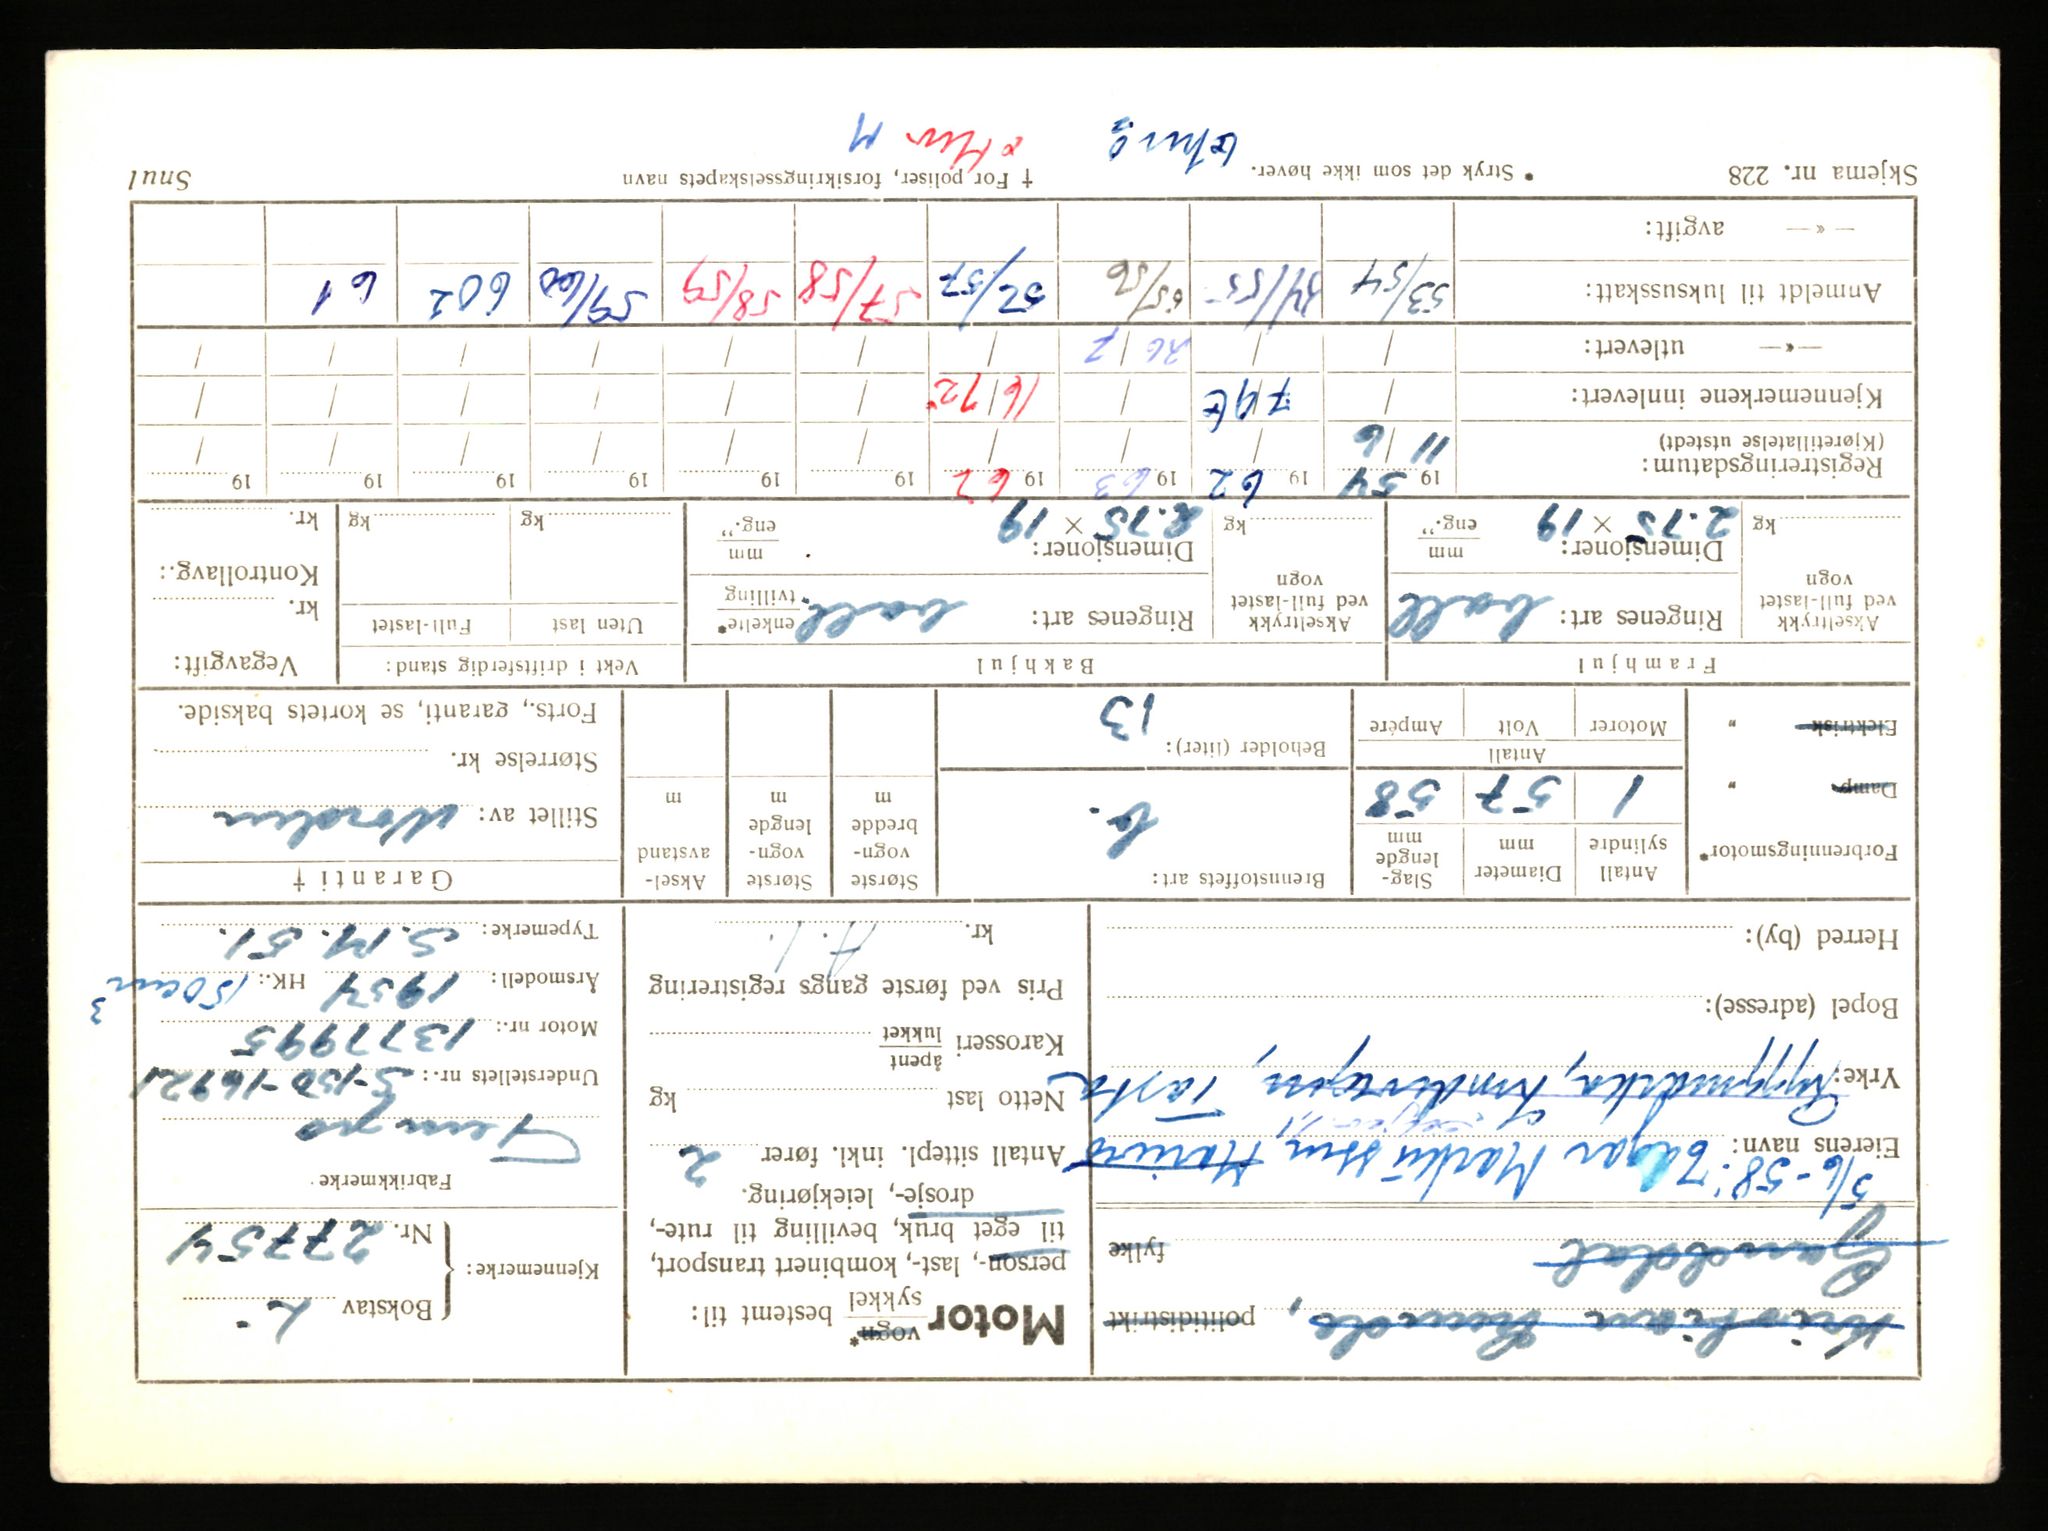 Kristian Lunde, politidistrikt
Gandddal fylke
5/6-58: Edgar Markussen, Marius
Eierens navn:
Yrke: Ryggmarka, Randabergvn, Tasta
Bopel (adresse):
Herred (by):
Motor vogn* sykkel bestemt til:
person-, last-, kombinert transport,
til eget bruk, bevilling til rute-,
drosje-, leiekjøring.
Antall sittepl. inkl. fører 2
Netto last kg
Karosseri åpent lukket
Pris ved første gangs registrering
kr.
Kjennemerke: Bokstav L
Nr. 27754
Fabrikkmerke
Tempo
Understellets nr.: S-150-16921
Motor nr.: 1377995
Årsmodell: 1954 HK.: 150 cm³
Typemerke: S.M. 51.
Forbrenningsmotor*
Damp "
Elektrisk "
Antall sylindre 1
Diameter mm 57
Slag-lengde mm 58
Antall
Motorer Volt Ampére
Brennstoffets art: b.
Beholder (liter): 13
Største vogn-bredde m
Største vogn-lengde m
Aksel-avstand m
Garanti †
Stillet av: Norden
Størrelse kr.
Forts., garanti, se kortets bakside.
Framhjul
Akseltrykk ved full-lastet vogn kg
Ringenes art: ball
Dimensjoner: 2.75 × 19 mm eng."
Bakhjul
Akseltrykk ved full-lastet vogn kg
Ringenes art: ball enkelte* tvilling
Dimensjoner: 2.75 × 19 mm eng."
Vekt i driftsferdig stand:
Uten last Full-lastet
kg kg
Vegavgift:
kr.
Kontrollavg.:
kr.
Registreringsdatum: 19 54 19 62 19 63 19 62 19 19 19 19 19 19
(Kjøretillatelse utstedt) 11/6 / / / / / / / / /
Kjennemerkene innlevert: / 7/9 / 16/12 / / / / / /
—«— utlevert: / / 26/7 / / / / / / /
Anmeldt til luksusskatt: 53/54 54/55 55/56 56/57 57/58 58/59 59/60 602 61
—«— avgift:
Skjema nr. 228 * Stryk det som ikke høver. † For poliser, forsikringsselskapets navn Snul
M